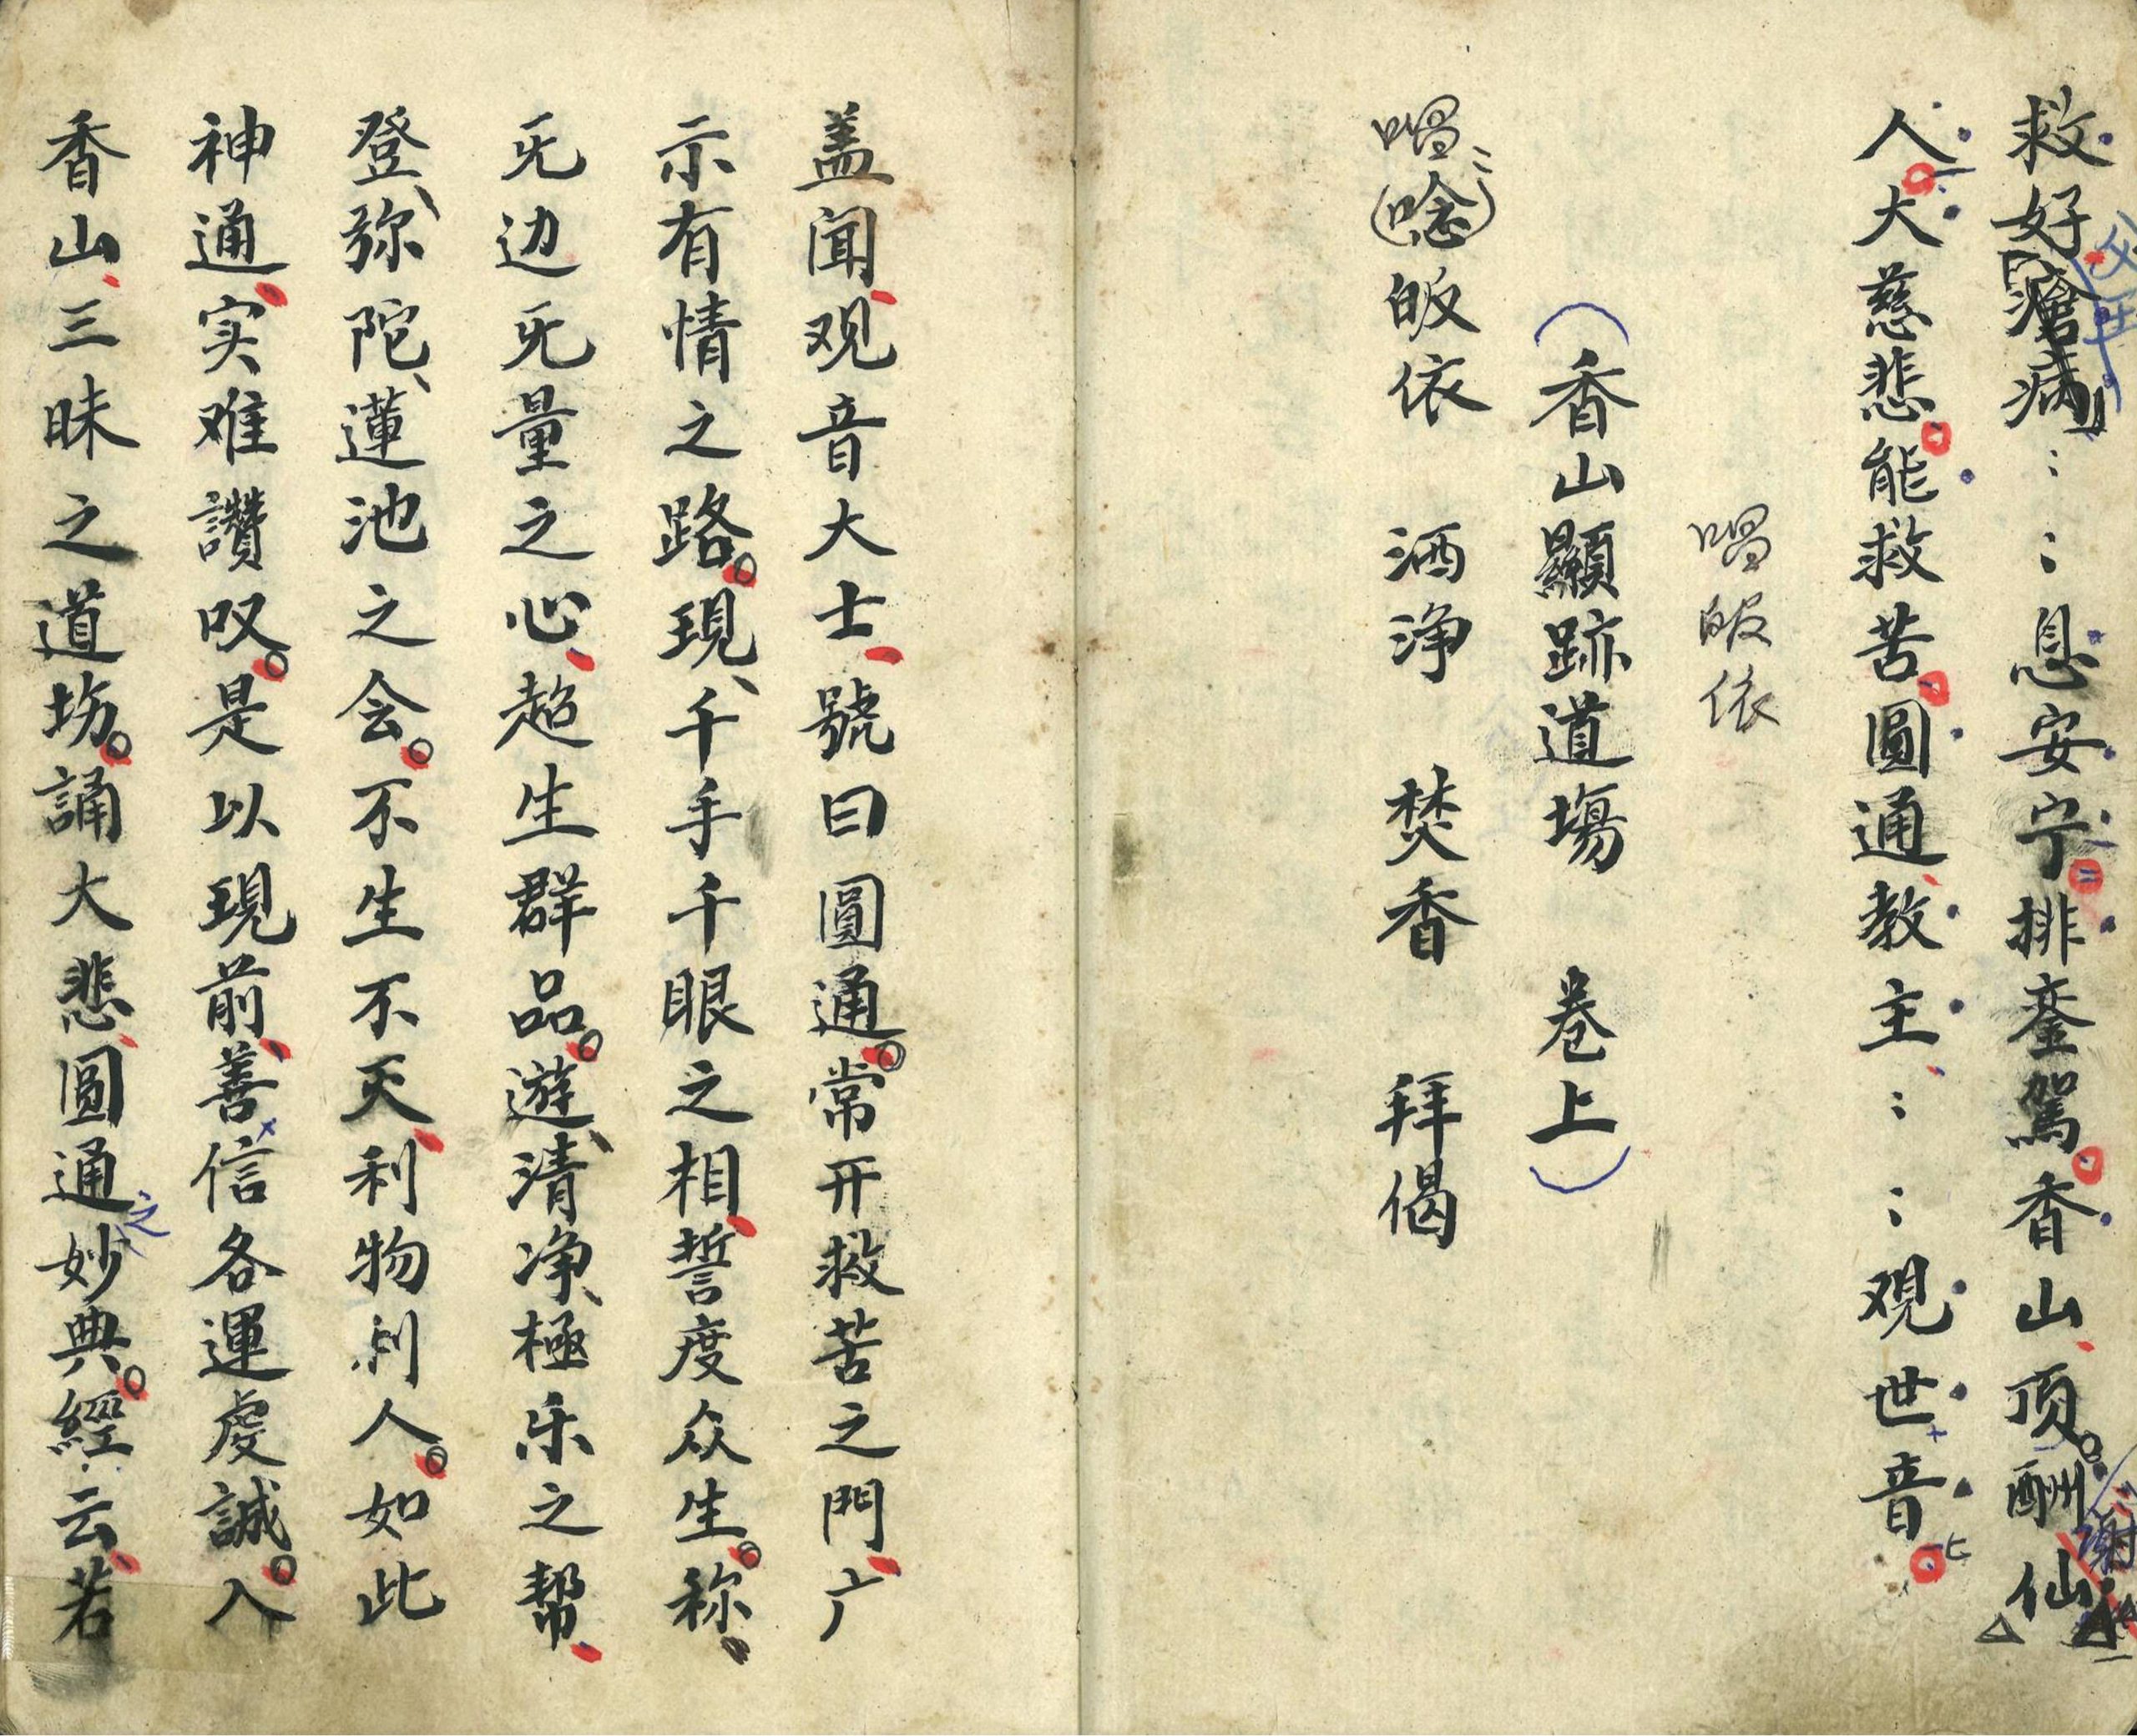 救好瘡病：：息安宁排銮駕香山顶。酬仙
父王
謝
人大慈悲能救苦圓通教主：：观世音
唱皈依
（香山顯跡道場　卷上）
唱（唸）皈依　洒浄　焚香　拜偈
盖闻、观音大士、號曰圓通。常开救苦之門、广
示有情之路。現、千手千眼之相、誓度众生。称、
旡边旡量之心、超生群品。遊、清净、極乐之幇、
登、弥陀、蓮池之会。不生不灭、利物利人。如此
神通、实难讚叹。是以現前、善信各運虔誠。入
香山、三昧之道场。誦大悲、圓通妙典。經云、若
之